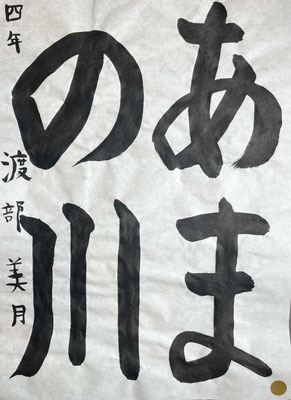 あま
の川
四年 渡部美月